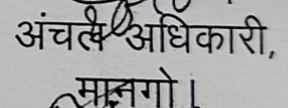 अंचल अधिकारी,
मानगो।